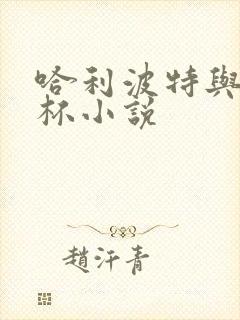 哈利波特與
杯小說
趙汗青